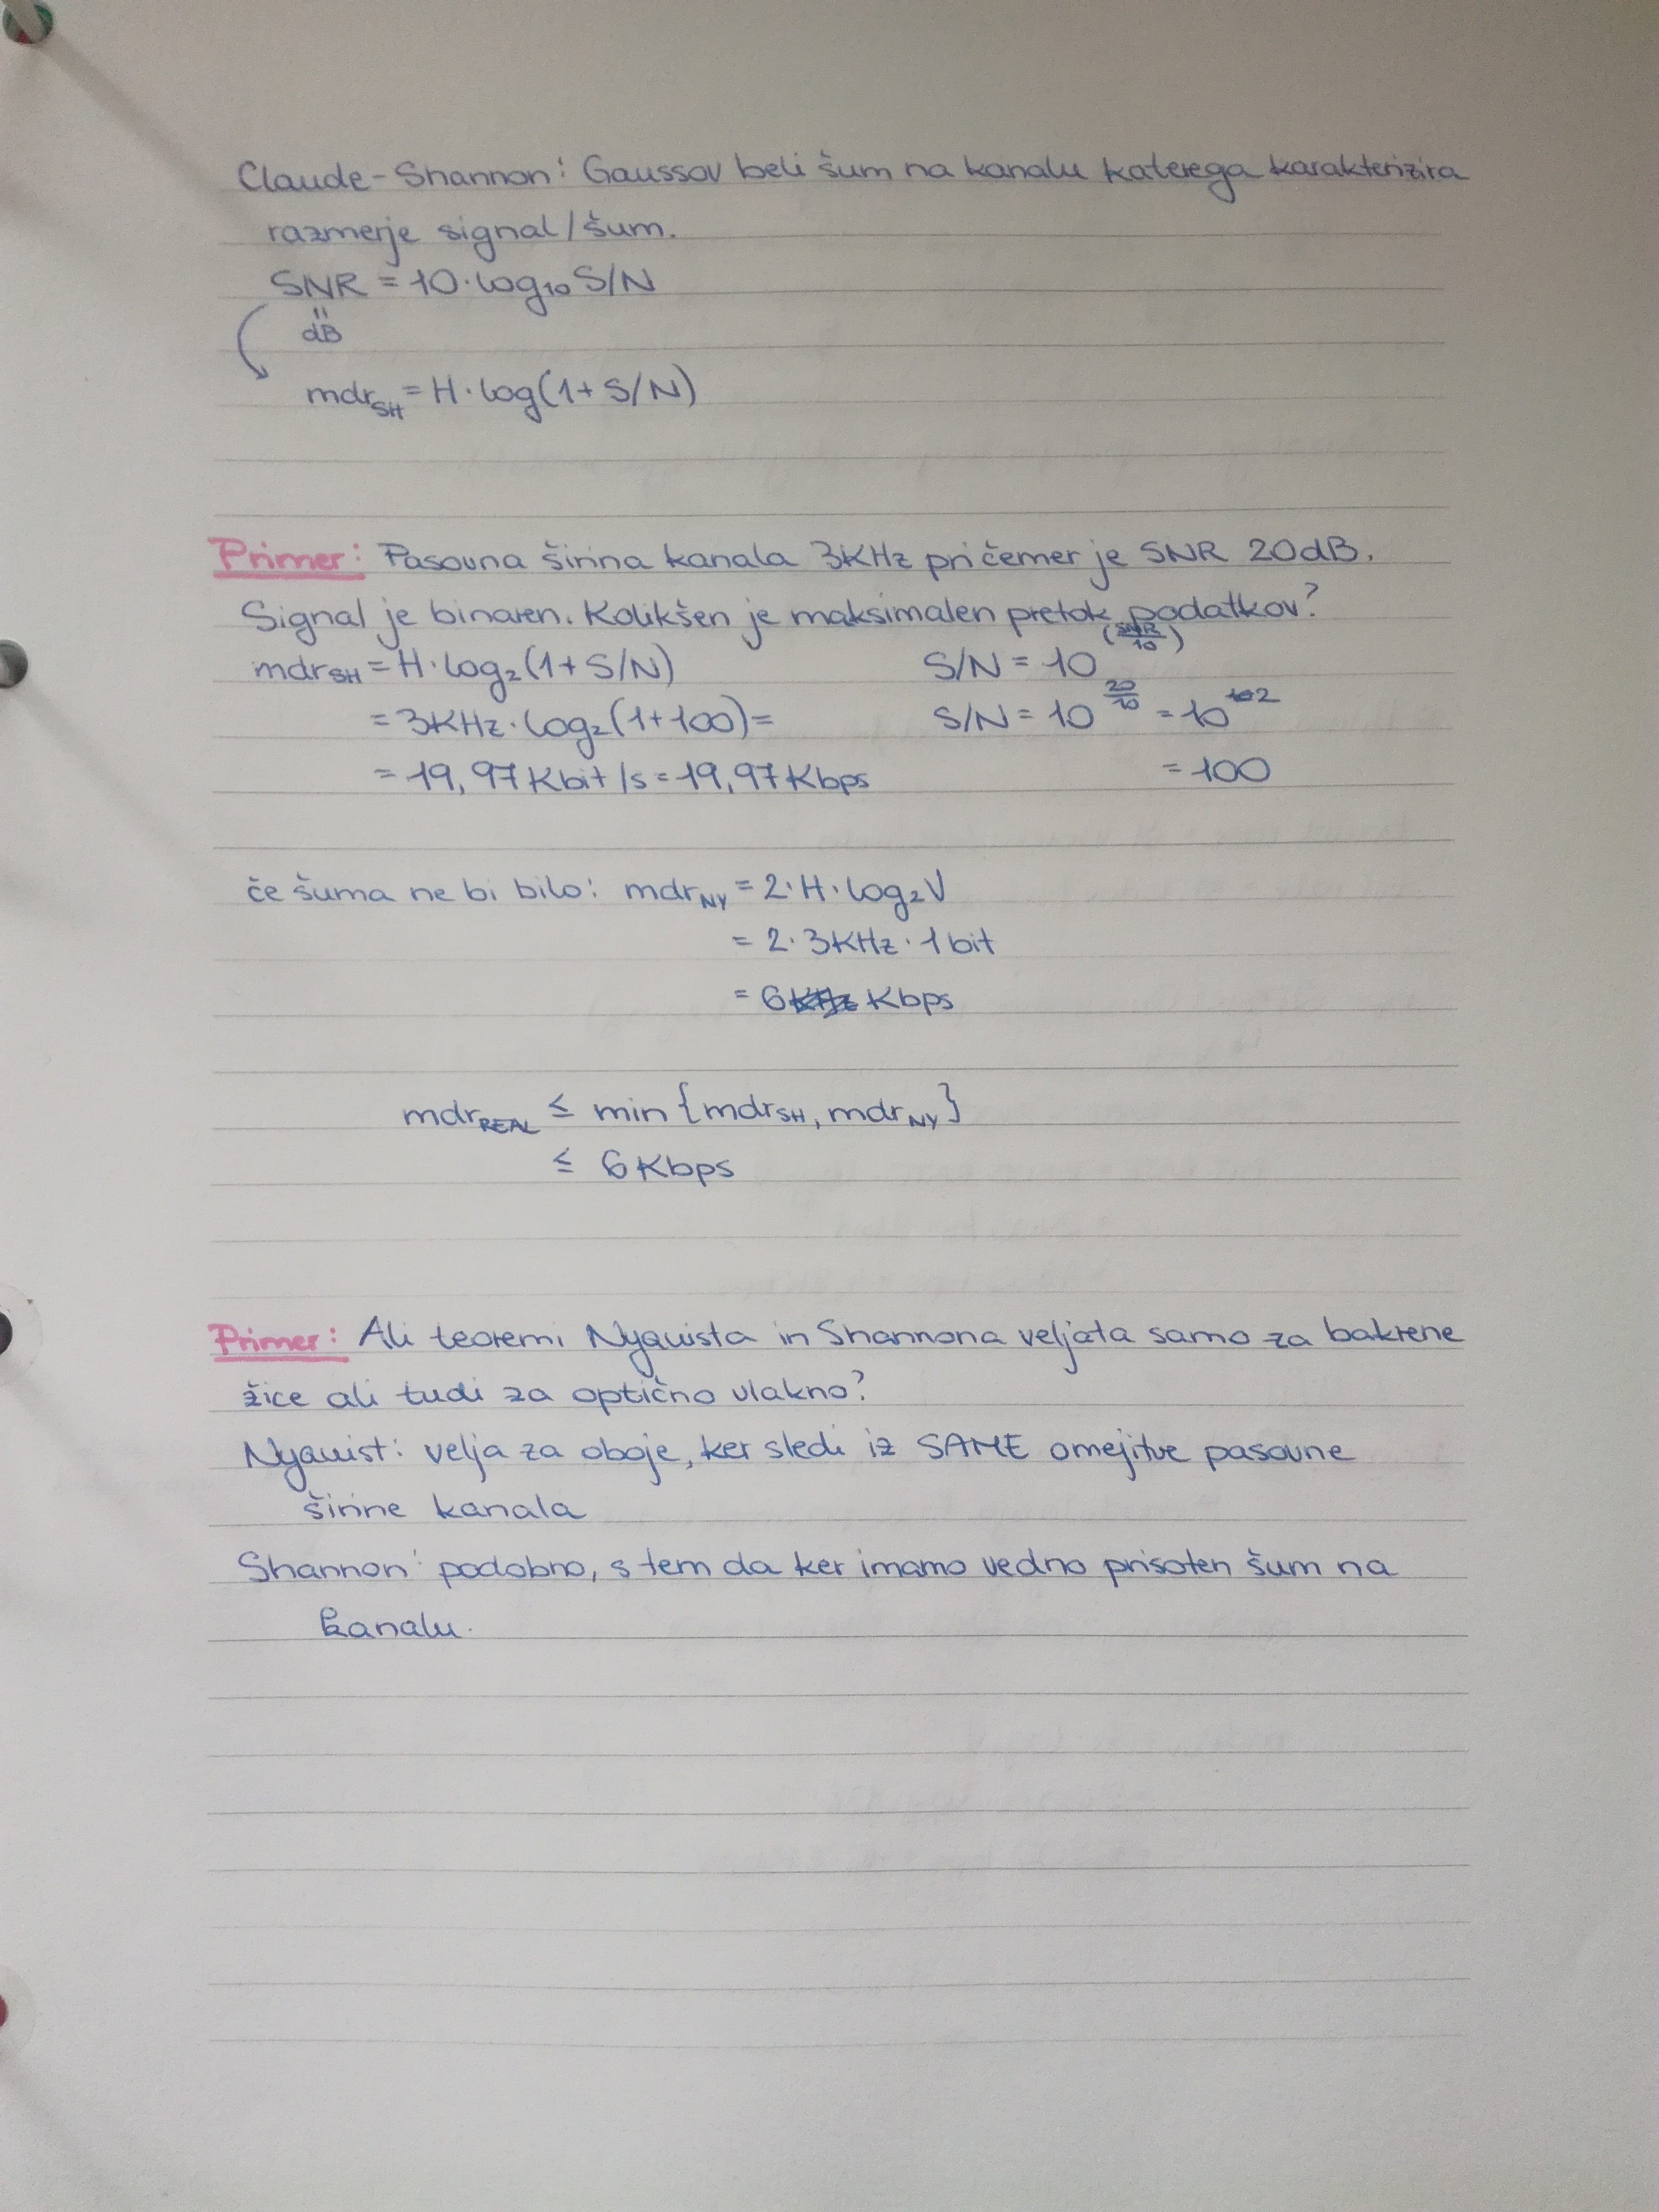 Claude-Shannon: Gaussov beli šum na kanalu katerega karakterizira
razmerje signal/šum.
SNR = 10·log₁₀ S/N
dB
mdr_SH = H·log(1+S/N)
Primer: Pasovna širina kanala 3KHz pri čemer je SNR 20dB.
Signal je binaren. Kolikšen je maksimalen pretok podatkov?
mdr_SH = H·log₂(1+S/N) S/N = 10^(SNR/10)
= 3KHz·log₂(1+100)= S/N = 10^20/10 = 10^2
= 19,97Kbit/s = 19,97Kbps = 100
če šuma ne bi bilo: mdr_NY = 2·H·log₂V
= 2·3KHz·1bit
= 6 Kbps
mdr_REAL ≤ min {mdr_SH, mdr_NY}
≤ 6Kbps
Primer: Ali teoremi Nyquista in Shannona veljata samo za bakrene
žice ali tudi za optično vlakno?
Nyquist: velja za oboje, ker sledi iz SAME omejitve pasovne
širine kanala
Shannon: podobno, s tem da ker imamo vedno prisoten šum na
kanalu.